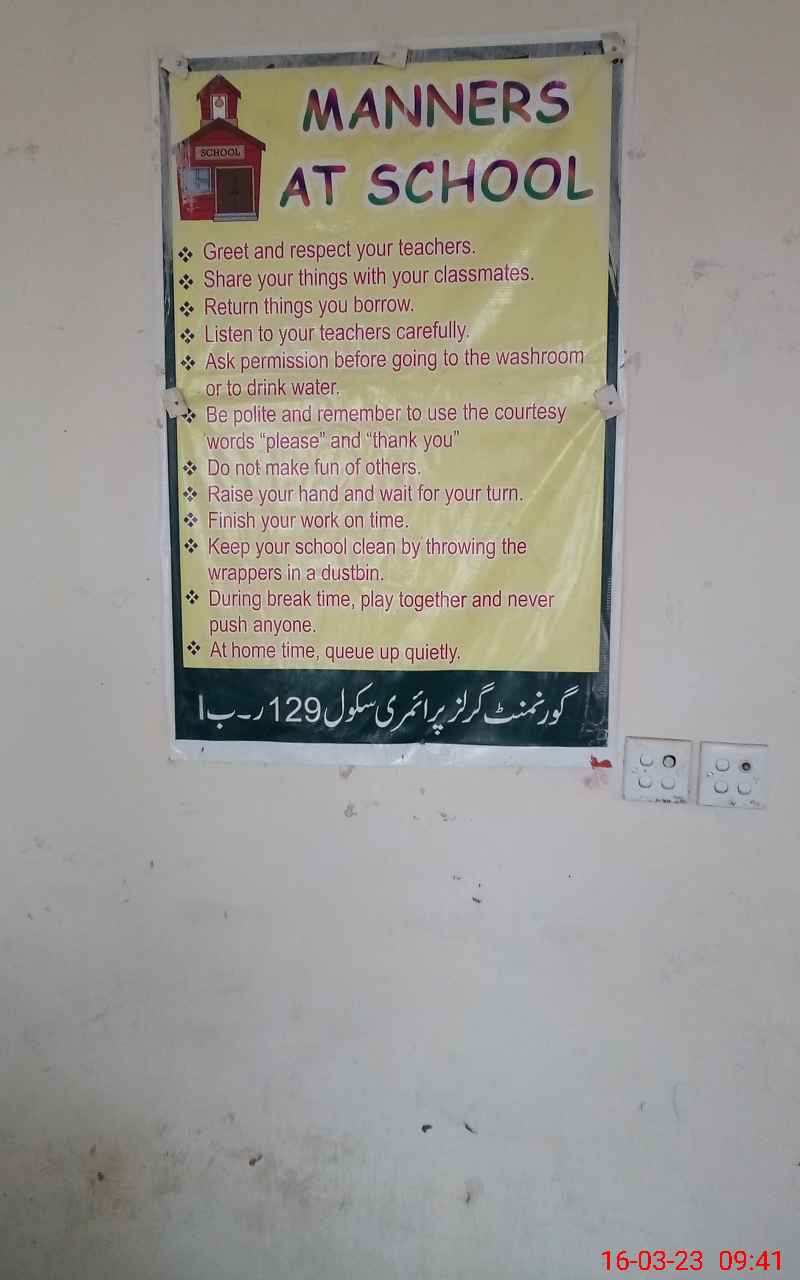 MANNERS
AT SCHOOL
SCHOOL
Greet and respect your teachers.
Share your things with your classmates.
Return things you borrow.
Listen to your teachers carefully.
Ask permission before going to the washroom
or to drink water.
Be polite and remember to use the courtesy
words “please” and “thank you”
Do not make fun of others.
Raise your hand and wait for your turn.
Finish your work on time.
Keep your school clean by throwing the
wrappers in a dustbin.
During break time, play together and never
push anyone.
At home time, queue up quietly.
گورنمنٹ گرلز پرائمری سکول 129 ر۔ب ا
16-03-23 09:41